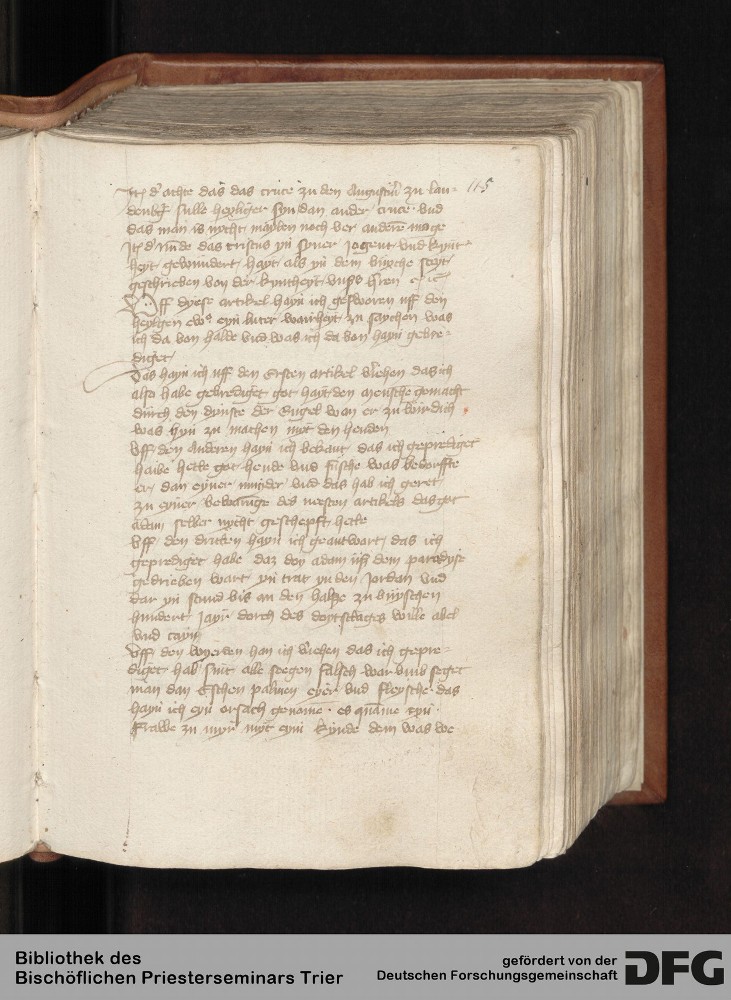 It͠ d' achte das das cruce zu den Augustin' zu lau=
115
denb'g sulle heyliger syn dan ander cruce vnd
das man is nycht mylen noch ver anderē moge
It͠ d' nūde das cristus yn syner jogent vnd kynt
heyt gewundert hayt als yn dem buyche steyt
geschrieben von der kyntheyt vnßs h'ren
Vff dyese artikel hayn ich gesworen uff den
heylgen eyn luter warheyt zu saychen was
ich da von halde vnd was ich da von hayn gebre=
diget
Das hayn ich uff den Ersten artikel v'iehen das ich
also habe gebrediget got hayt den mensche gemacht
durch den dynste der Engel wan er zu wirdich
was hyn zu machen myt den henden
Vff den Anderen hayn ich bekant das ich geprediget
haibe hette got hende vnd fusche was bedorffte
er dan eyner muyder vnd das hab ich geret
zu eyner bewarūge des nesten artikels das got
adam selber nycht geschepft hette
Vff den dritten hayn ich geantwart das ich
geprediget habe daz doy adam uß dem paradyse
gedrieben wart yn trat yn den Jordan vnd
dar yn stund bis an den haltze zu buyschen
hundert jayr dorch des doytslages wille abel
vnd cayn
Vff den vyerden han ich v'iehen das ich gepre=
diget hab' sint alle seegen falsch war vmb seget
man dan Eschen palmen eyer vnd fleysche das
hayn ich eyn orsach genome es quame eyn
frauwe zu myr myt eym kynde dem was we
Bibliothek des
Bischöflichen Priesterseminars Trier
gefördert von der
Deutschen Forschungsgemeinschaft
DFG